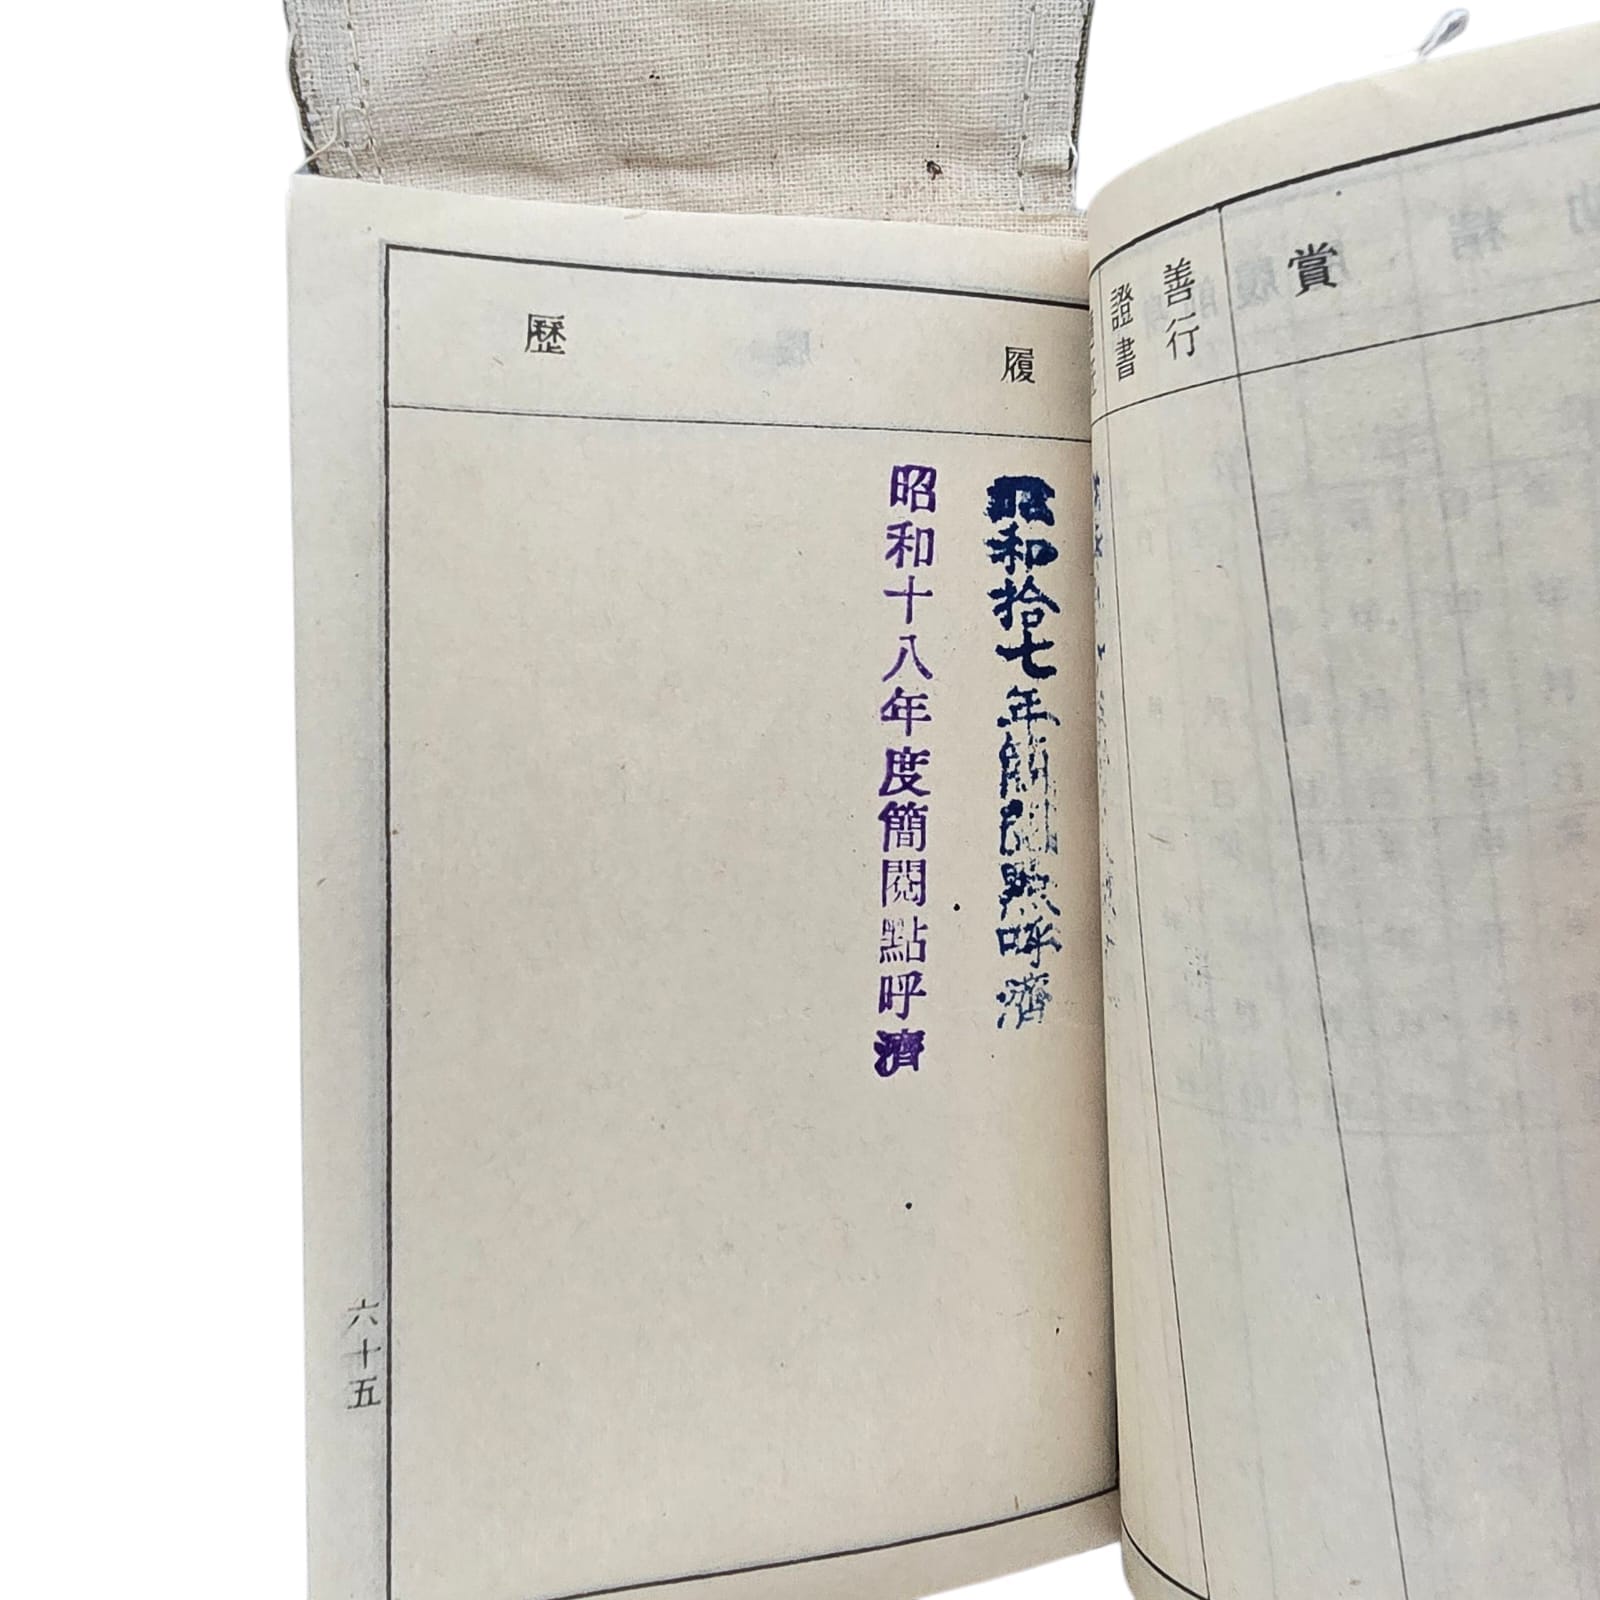 賞
善行
證書
履歷
昭和拾七年簡閲點呼濟
昭和十八年度簡閲點呼濟
六十五